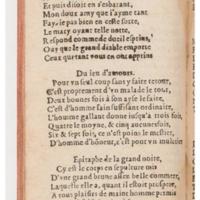 Et puis disoit en s'esbatant,
Mon doux amy que i'ayme tant
Fay-le pas bien en ceste sorte,
Le macy oyant telle notte,
Respond comme de dueil espris,
Ouy que le grand diable emporte
Ceux qui tant vous en ont appris
Du ieu d'amours.
Pour vn seul coup sans y faire retour,
C'est proprement d'vn malade le tour,
Deux bonnes fois à son ayse le faire,
C'est d'homme sain suffisant ordinaire,
L'homme gallant donne iusqu'a trois fois,
Quatre le moyne, & cinq aucunesfois,
Six & sept fois, ce n'est poinct le mestier,
D'homme d'honneur, c'est pour vn muletier
Epitaphe de la grand noire,
Cy est le corps en sepulture mis
D'vne grand brune assez belle commere,
Laquelle a, quant il estoit prospere,
A tous plaisirs de maine homme permis